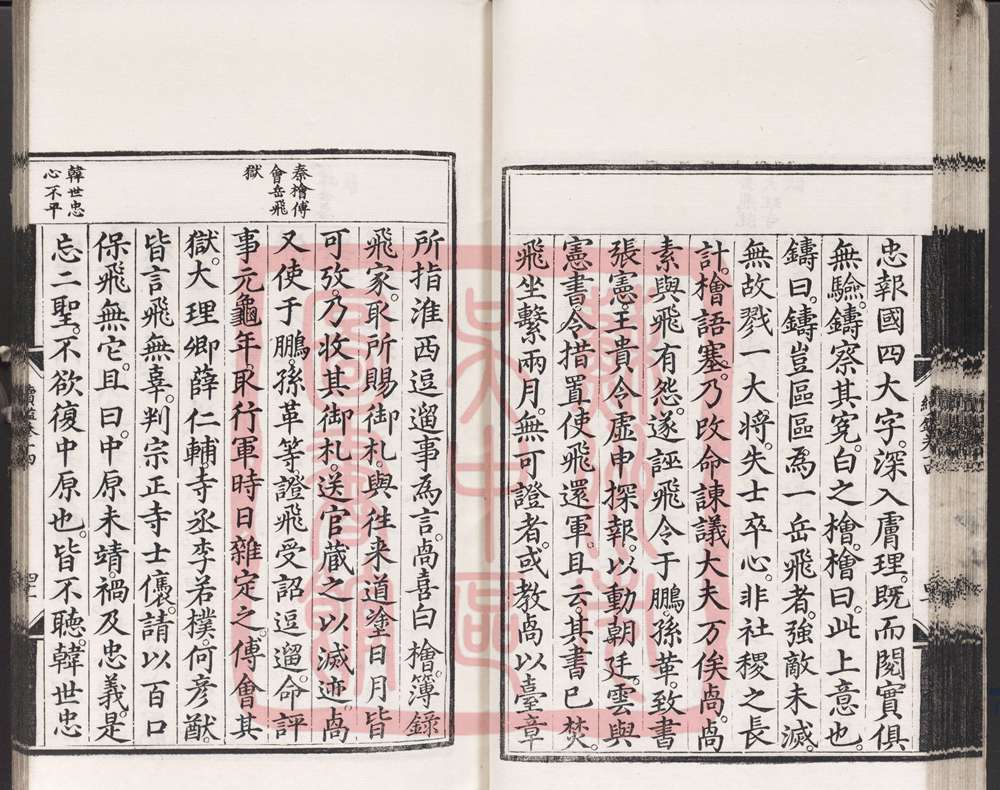 忠報國四大字。深入膚理。既而閱實俱
無驗。鑄察其冤。白之檜。檜曰。此上意也。
鑄曰。鑄豈區區爲一岳飛者。強敵未滅。
無故戮一大將。失士卒心。非社稷之長
計。檜語塞。乃改命諫議大夫万俟卨。卨
素與飛有怨。遂誣飛令于鵬。孫革。致書
張憲。王貴令虛申探報。以動朝廷。雲與
憲書。令措置使飛還軍。且云。其書已焚。
飛坐繫兩月。無可證者。或教卨以臺章
秦檜傅
會岳飛
獄
韓世忠
心不平
所指淮西逗遛事爲言。卨喜白檜。簿錄
飛家。取所賜御札。與往来道塗日月皆
可攷。乃收其御札。送官藏之。以滅迹。卨
又使于鵬孫革等。證飛受詔逗遛。命評
事元龜年取行軍時日雜定之。傅會其
獄。大理卿薛仁輔。寺丞李若樸。何彥猷
皆言飛無辜。判宗正寺士㒟。請以百口
保飛無它。且曰。中原未靖。禍及忠義。是
忘二聖。不欲復中原也。皆不聽。韓世忠